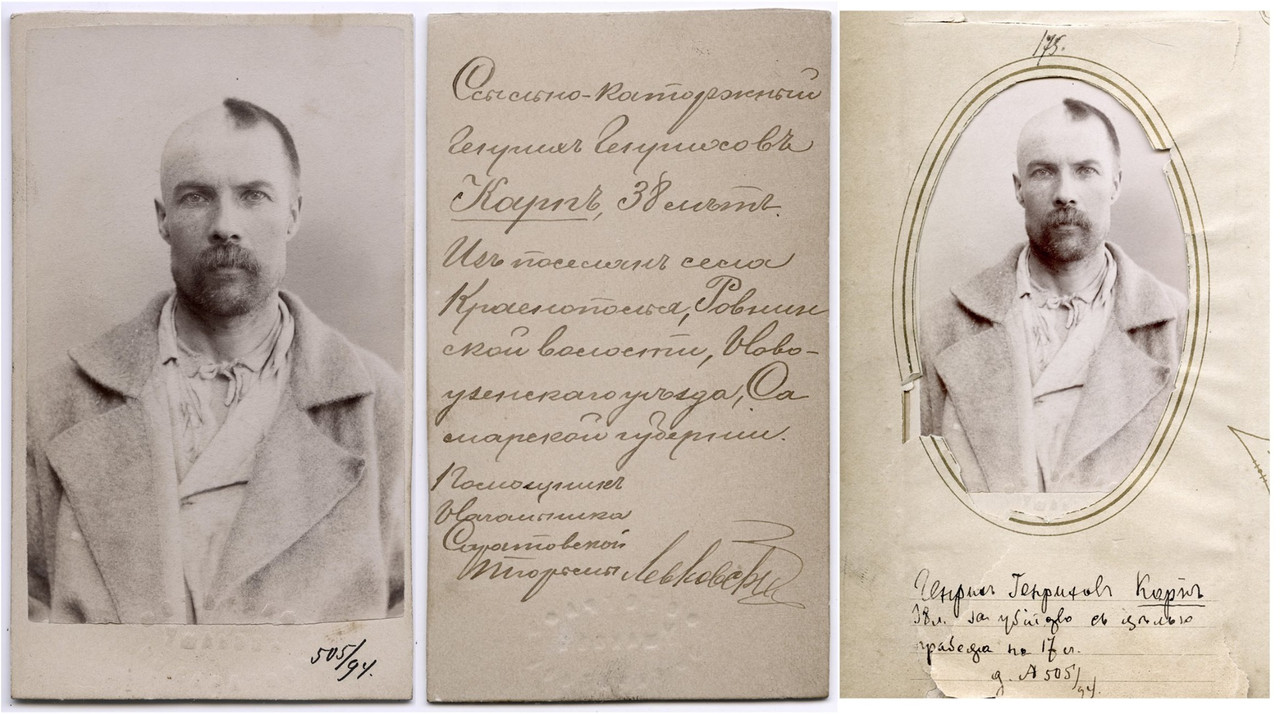 505/94.
Ссыльно-каторжный
Генрихъ Генриховъ
Карпъ, 38 лѣтъ.
Изъ поселянъ села
Краснополья, Ровнин
ской волости, Ново-
узенскаго уѣзда, Са
марской губернии.
Помощникъ
Начальника
Саратовской
Тюрьмы Левковскій
175.
Генрихъ Генриховъ Карпъ
38 л. за убійство съ цѣлью
грабежа на 17 л.
д. № 505/94.